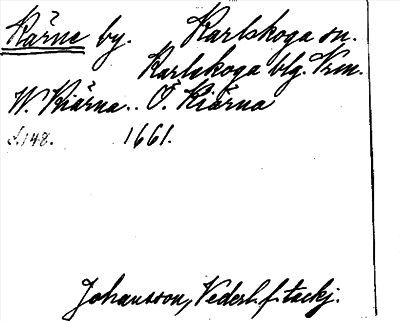 Kärne by. Karlskoga sn.
Karlskoga blg. Vrm.
W. Kiärna.. Ö. Kiärna
s. 148. 1661.
Johansson, Vederl. f. tackj.